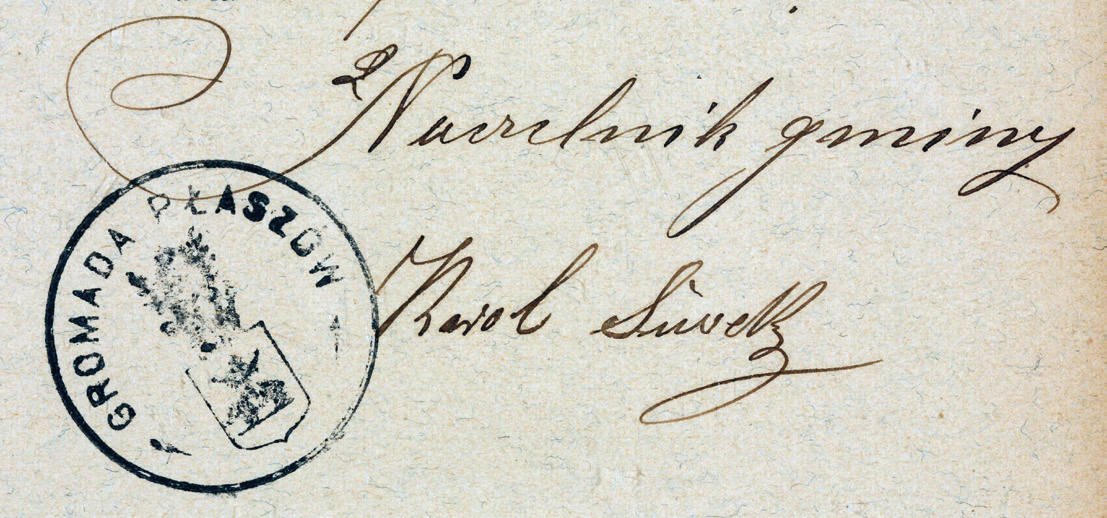 Naczelnik gminy
Karol
GROMADA PŁASZÓW